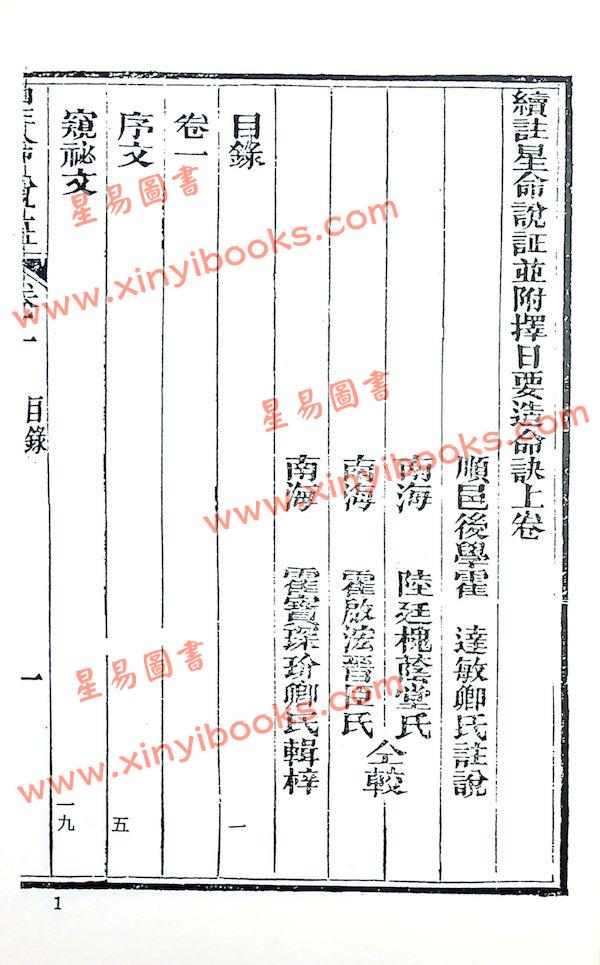 續註星命說証並附擇日要造命訣上卷
順邑後學霍　達敏卿氏註說
南海　陸廷槐蔭堂氏
南海　霍啟法晉臣氏
仝較
南海　霍寶琛玠卿氏輯梓
目錄　一
卷一
序文　五
窺祕文　一九
目錄　一
1
星易圖書
www.xinyibooks.com
星易圖書
www.xinyibooks.com
星易圖書
www.xinyibooks.com